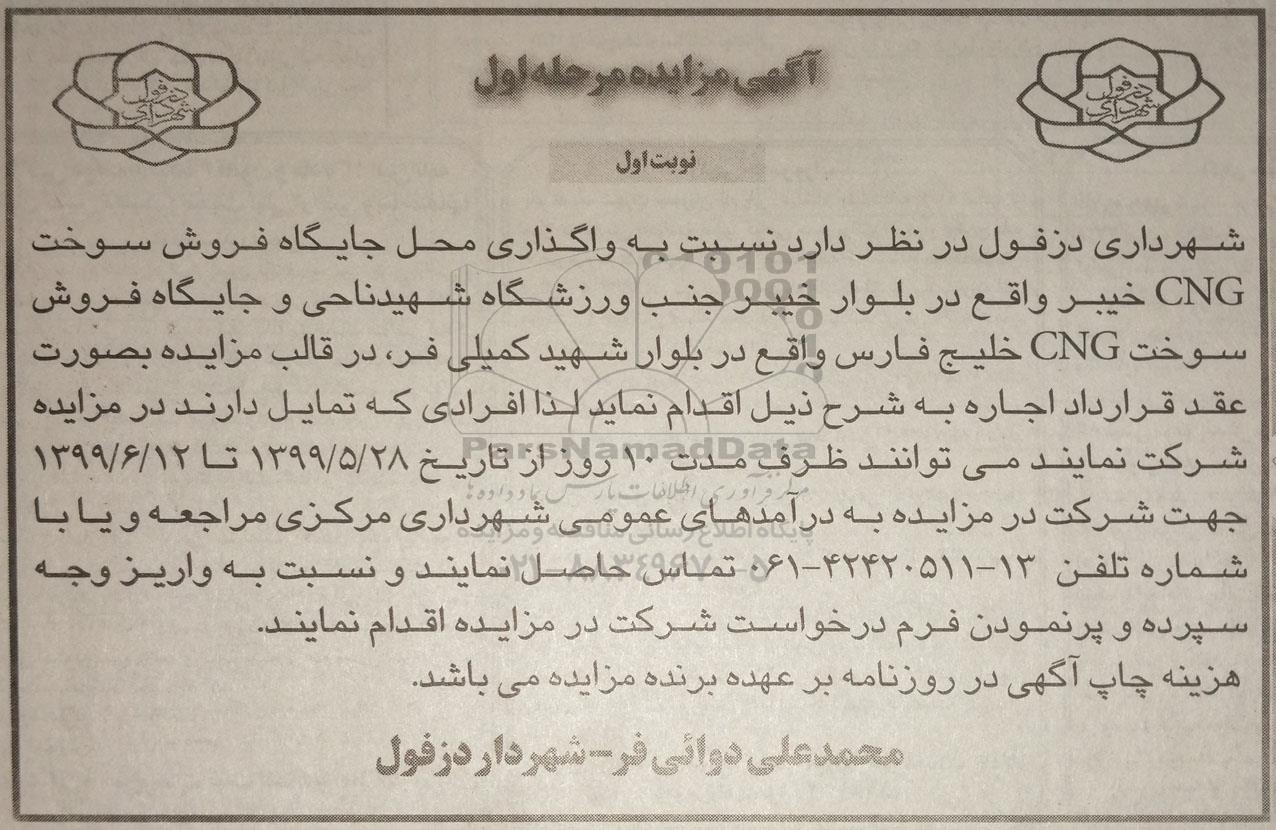 آگهی مزایده مرحله اول
شهرداری دزفول
شهرداری دزفول
نوبت اول
شهرداری دزفول در نظر دارد نسبت به واگذاری محل جایگاه فروش سوخت
CNG خیبر واقع در بلوار خیبر جنب ورزشگاه شهیدناحی و جایگاه فروش
سوخت CNG خلیج فارس واقع در بلوار شهید کمیلی فر، در قالب مزایده بصورت
عقد قرارداد اجاره به شرح ذیل اقدام نماید لذا افرادی که تمایل دارند در مزایده
شرکت نمایند می توانند ظرف مدت ۱۰ روز از تاریخ ۱۳۹۹/۵/۲۸ تا ۱۳۹۹/۶/۱۲
جهت شرکت در مزایده به درآمدهای عمومی شهرداری مرکزی مراجعه و یا با
شماره تلفن ۱۳-۰۶۱-۴۲۴۲۰۵۱۱ تماس حاصل نمایند و نسبت به واریز وجه
سپرده و پرنمودن فرم درخواست شرکت در مزایده اقدام نمایند.
هزینه چاپ آگهی در روزنامه بر عهده برنده مزایده می باشد.
محمدعلی دوائی فر-شهردار دزفول
ParsNamadData
مرکز فرآوری اطلاعات پارس نماد داده ها
پایگاه اطلاع رسانی مناقصه و مزایده